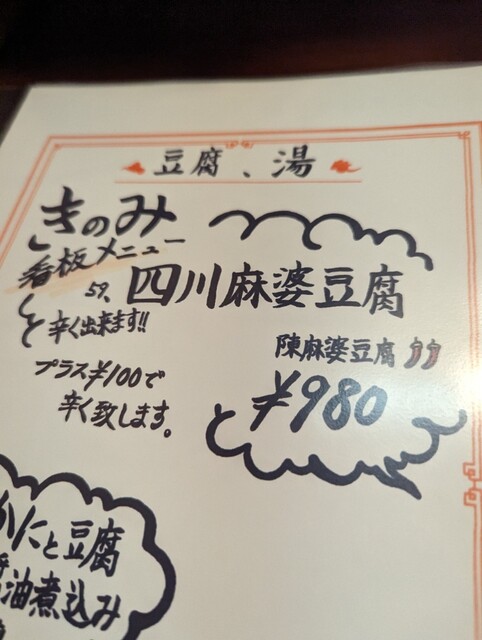 豆腐、湯
きのみ
看板メニュー
59、四川麻婆豆腐
辛く出来ます!!
陳麻婆豆腐
プラス¥100で
辛く致します。
¥980
かにと豆腐
油煮込み